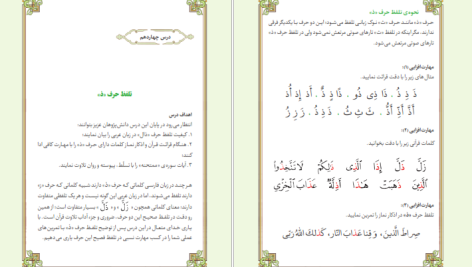 نحوه‌ی تلفظ حرف «ذ»
حرف «ذ» مانند حرف «ث» نوک زبانی تلفظ می‌شود؛ این دو حرف با یکدیگر فرقی
ندارند مگر اینکه در تلفظ «ث» تارهای صوتی مرتعش نمی شود ولی در تلفظ حرف «ذ»
تارهای صوتی مرتعش می‌شود.
مهارت افزایی (۱):
مثال های زیر را با دقت قرائت نمایید.
ذَ ذِ ذُ . ذَا ذِی ذُو . ذًا ذٍ ذٌ . أَذ إِذ أُذ
أَذَّ أَذِّ أُذُّ . ثَ ثِ ثُ . ذَ ذِ ذُ . زَ زِ زُ
مهارت افزایی (۲):
کلمات قرآنی زیر را با دقت بخوانید.
زَلَّ ذَلَّ إِذَا الَّذِی ذَلِكُمْ لَاتَتَّخِذُوا
الَّذِینَ ذَهَبَتْ هَـٰذَا أَذِلَّةٍ عَذَابَ الْخِزْيِ
مهارت افزایی (۳):
تلفظ حرف «ذ» در اذکار نماز را تمرین نمایید.
صِرَاطَ الَّذِینَ، وَ قِنَا عَذَابَ النَّارِ، كَذَلِكَ اللهُ رَبِّی
درس چهاردهم
تلفظ حرف «ذ»
اهداف درس
انتظار می‌رود در پایان این درس دانش‌پژوهان عزیز بتوانند:
۱. کیفیت تلفظ حرف «ذال» در زبان عربی را بیان نمایند؛
۲. هنگام قرائت قرآن و اذکار نماز کلمات دارای حرف «ذ» را با مهارت کافی ادا
کنند؛
۳. آیات سوره‌ی «ممتحنه» را با تسلّط، پیوسته و روان تلاوت نمایند.
هر چند در زبان فارسی کلماتی که حرف «ذ» دارند شبیه کلماتی که حرف «ز»
دارند تلفظ می‌شوند، اما در زبان عربی این گونه نیست و هر یک تلفظی متفاوت
دارند؛ معنای کلماتی همچون «زَلَّ» و «ذَلَّ» بسیار متفاوت است؛ از همین
رو دقت در تلفظ صحیح این دو حرف، ضروری و جزء آداب تلاوت قرآن است. با
یاری خدای متعال در این درس پس از توضیح تلفظ حرف «ذ» با تمرین‌های
عملی شما را در کسب مهارت نسبی در تلفظ فصیح این حرف یاری می دهیم.